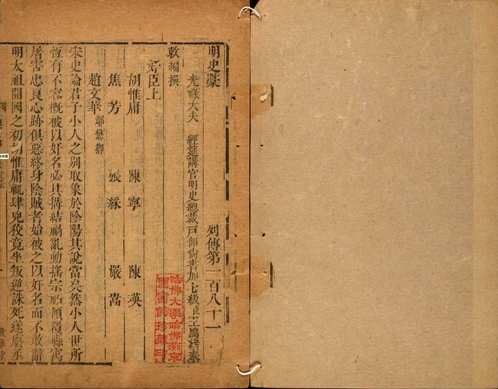 明史藁
列傳第一百八十一
光祿大夫 經筵講官明史總裁戶部尚書加七級臣王鴻緒奉
敕編撰
奸臣上
胡惟庸 陳寧 陳英
焦芳 張綵 嚴嵩
趙文華 鄢懋卿
宋史論君子小人之別取象於陰陽其說當矣然小人世所
恆有不容概被以奸名必其搆結禍亂動搖宗祏顛覆縣
屠害忠良心跡俱惡終身陰賊者始被之以奸名而不敢辭
明太祖開國之初胡惟庸肆兇狡竟坐叛逆誅死
哈佛大學哈佛燕京
圖書館珍藏印